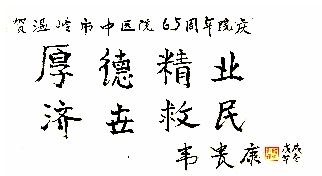 贺温岭市中医院65周年院庆
厚德精业
济世救民
韦贵康